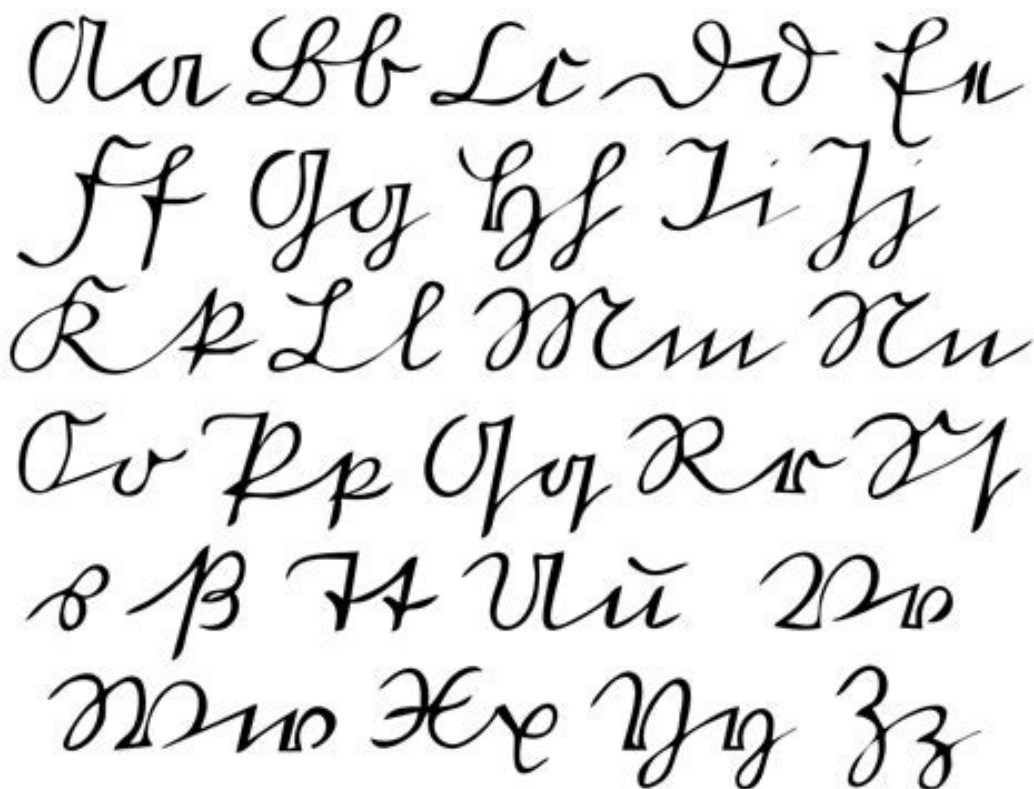 Aa Bb Cc Dd Ee
Ff Gg Hh Ii Jj
Kk Ll Mm Nn
Oo Pp Qq Rr Sſ
s ß Tt Uu Vv
Ww Xx Yy Zz